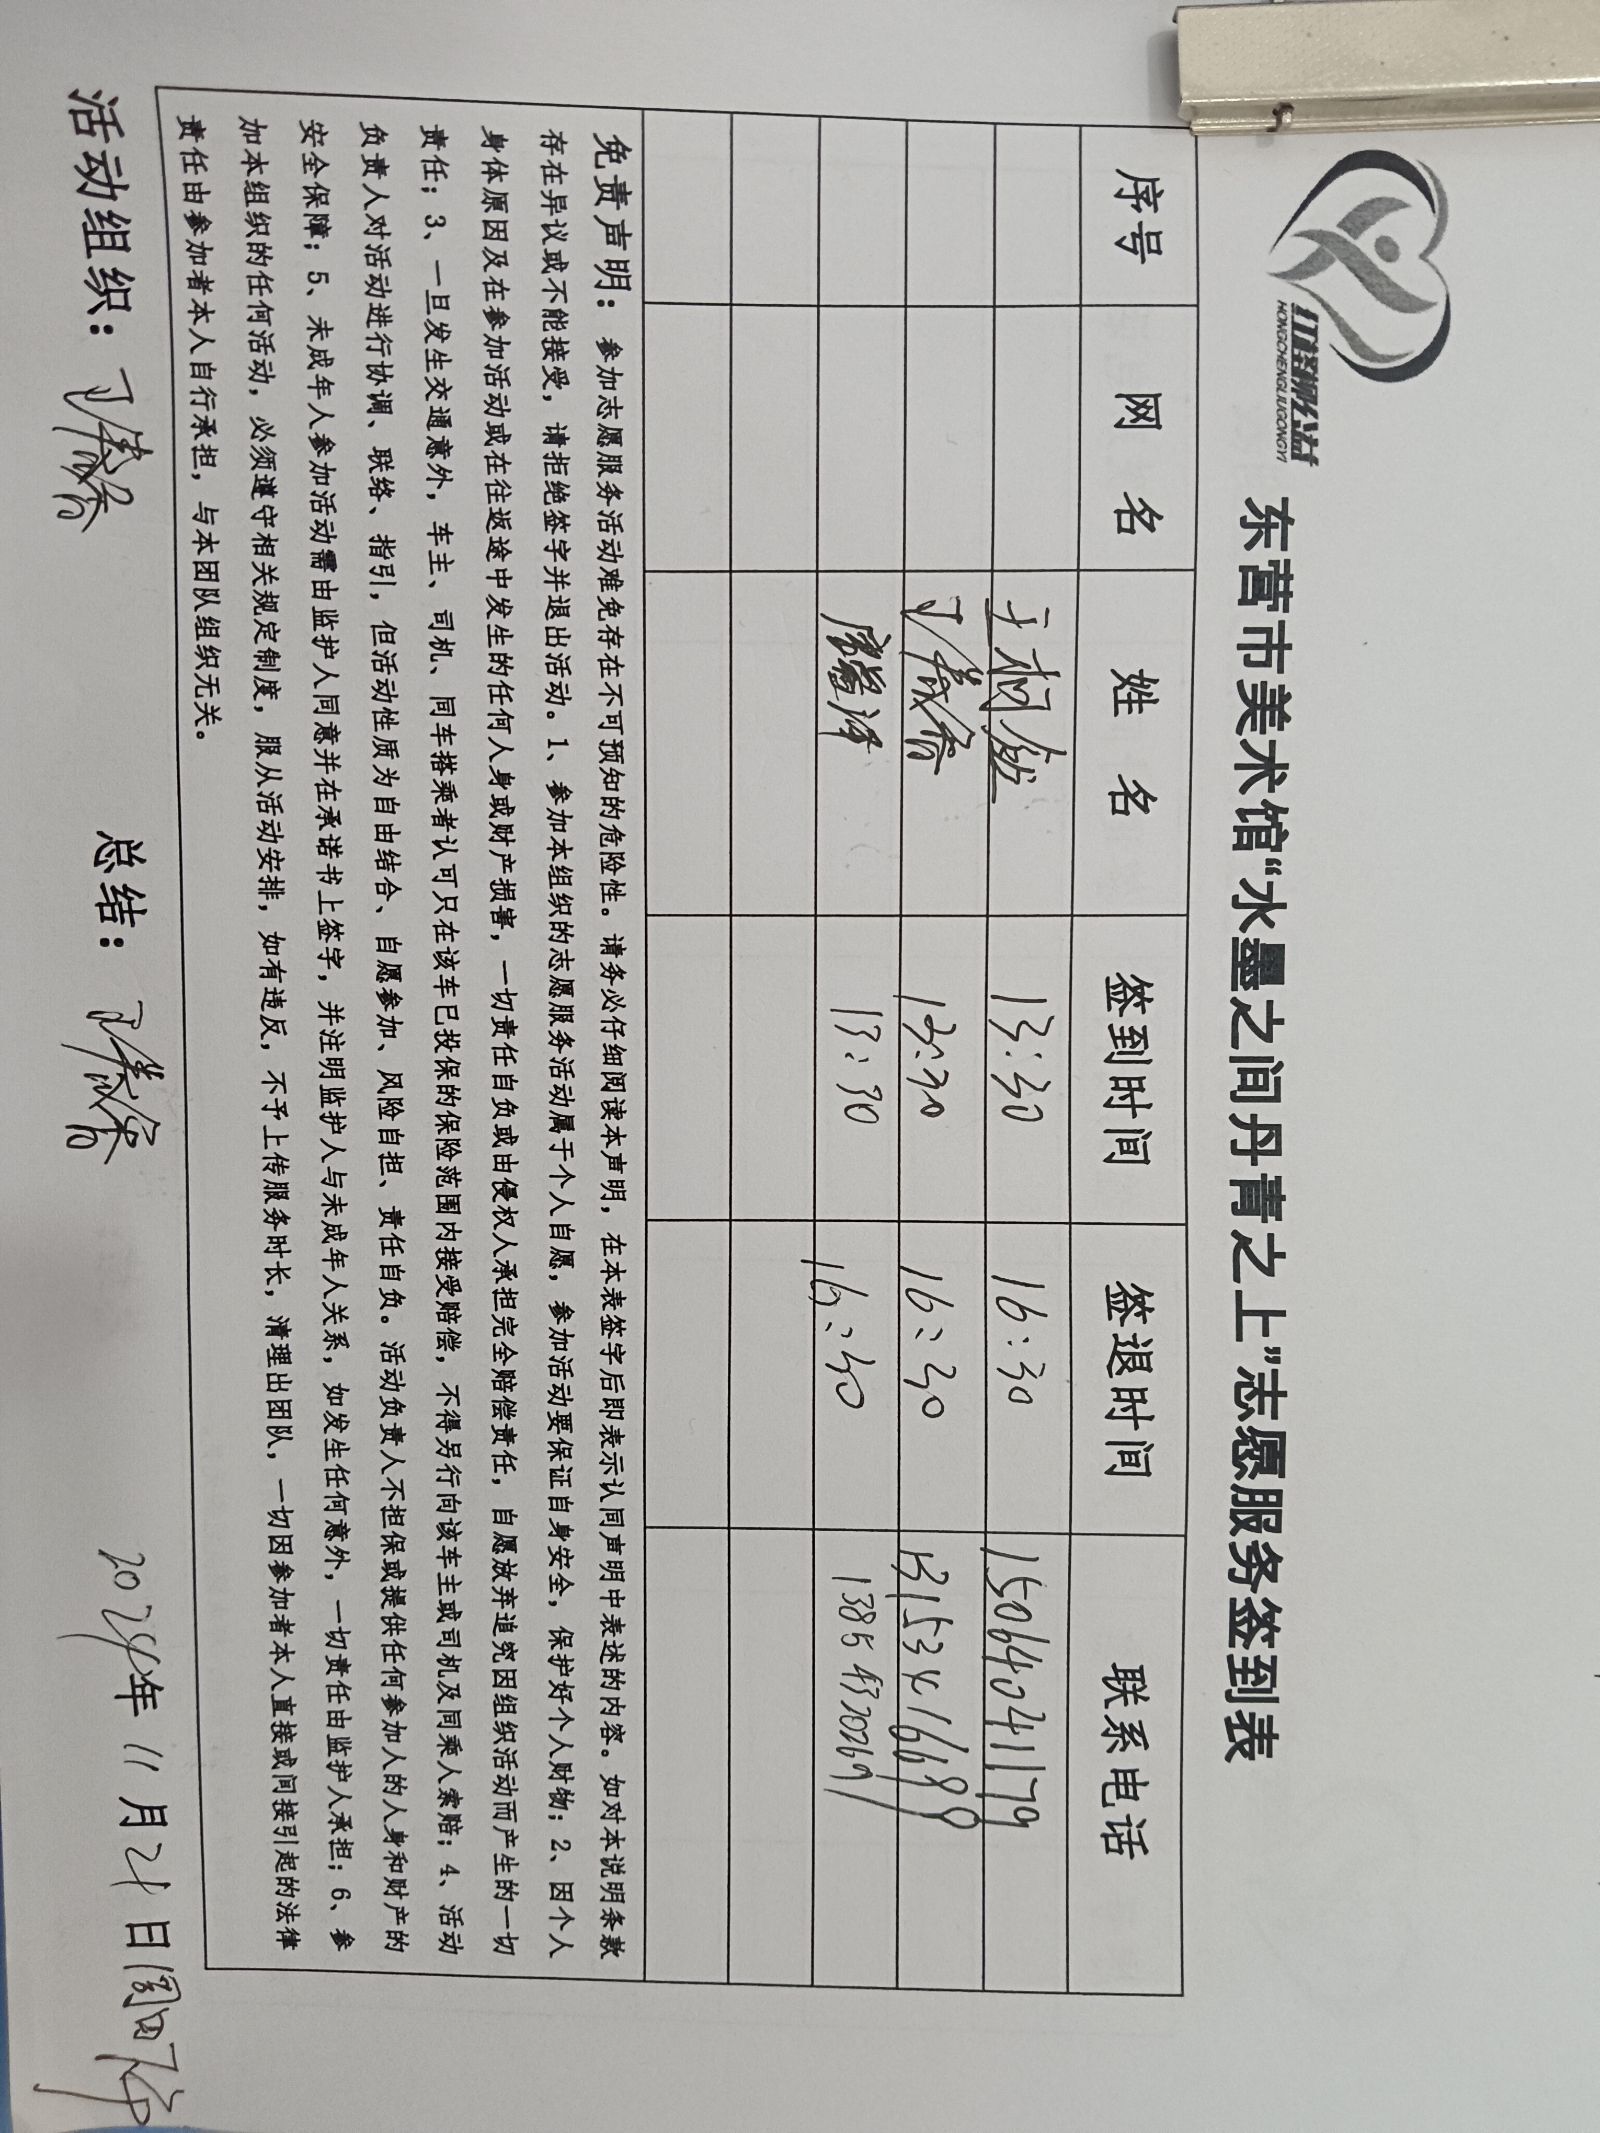 HONGCHENGLIUGONGYI
东营市美术馆“水墨之间丹青之上”志愿服务签到表
序号 网名 姓名 签到时间 签退时间 联系电话
13:30 16:30 15064041179
13:30 16:30
13:30 16:30
免责声明：参加志愿服务活动难免存在不可预知的危险性。请务必仔细阅读本声明，在本表签字后即表示认同声明中表述的内容。如对本说明条款
存在异议或不能接受，请拒绝签字并退出活动。1、参加本组织的志愿服务活动属于个人自愿，参加活动要保证自身安全，保护好个人财物；2、因个人
身体原因及在参加活动或在往返途中发生的任何人身或财产损害，一切责任自负或由侵权人承担完全赔偿责任，自愿放弃追究因组织活动而产生的一切
责任；3、一旦发生交通意外，车主、司机、同车搭乘者认可只在该车已投保的保险范围内接受赔偿，不得另行向该车主或司机及同乘人索赔；4、活动
负责人对活动进行协调、联络、指引，但活动性质为自由结合、自愿参加、风险自担、责任自负。活动负责人不担保或提供任何参加人的人身和财产的
安全保障；5、未成年人参加活动需由监护人同意并在承诺书上签字，并注明监护人与未成年人关系，如发生任何意外，一切责任由监护人承担；6、参
加本组织的任何活动，必须遵守相关规定制度，服从活动安排，如有违反，不予上传服务时长，清理出团队，一切因参加者本人直接或间接引起的法律
责任由参加者本人自行承担，与本团队组织无关。
活动组织： 总结： 2024年11月21日周四